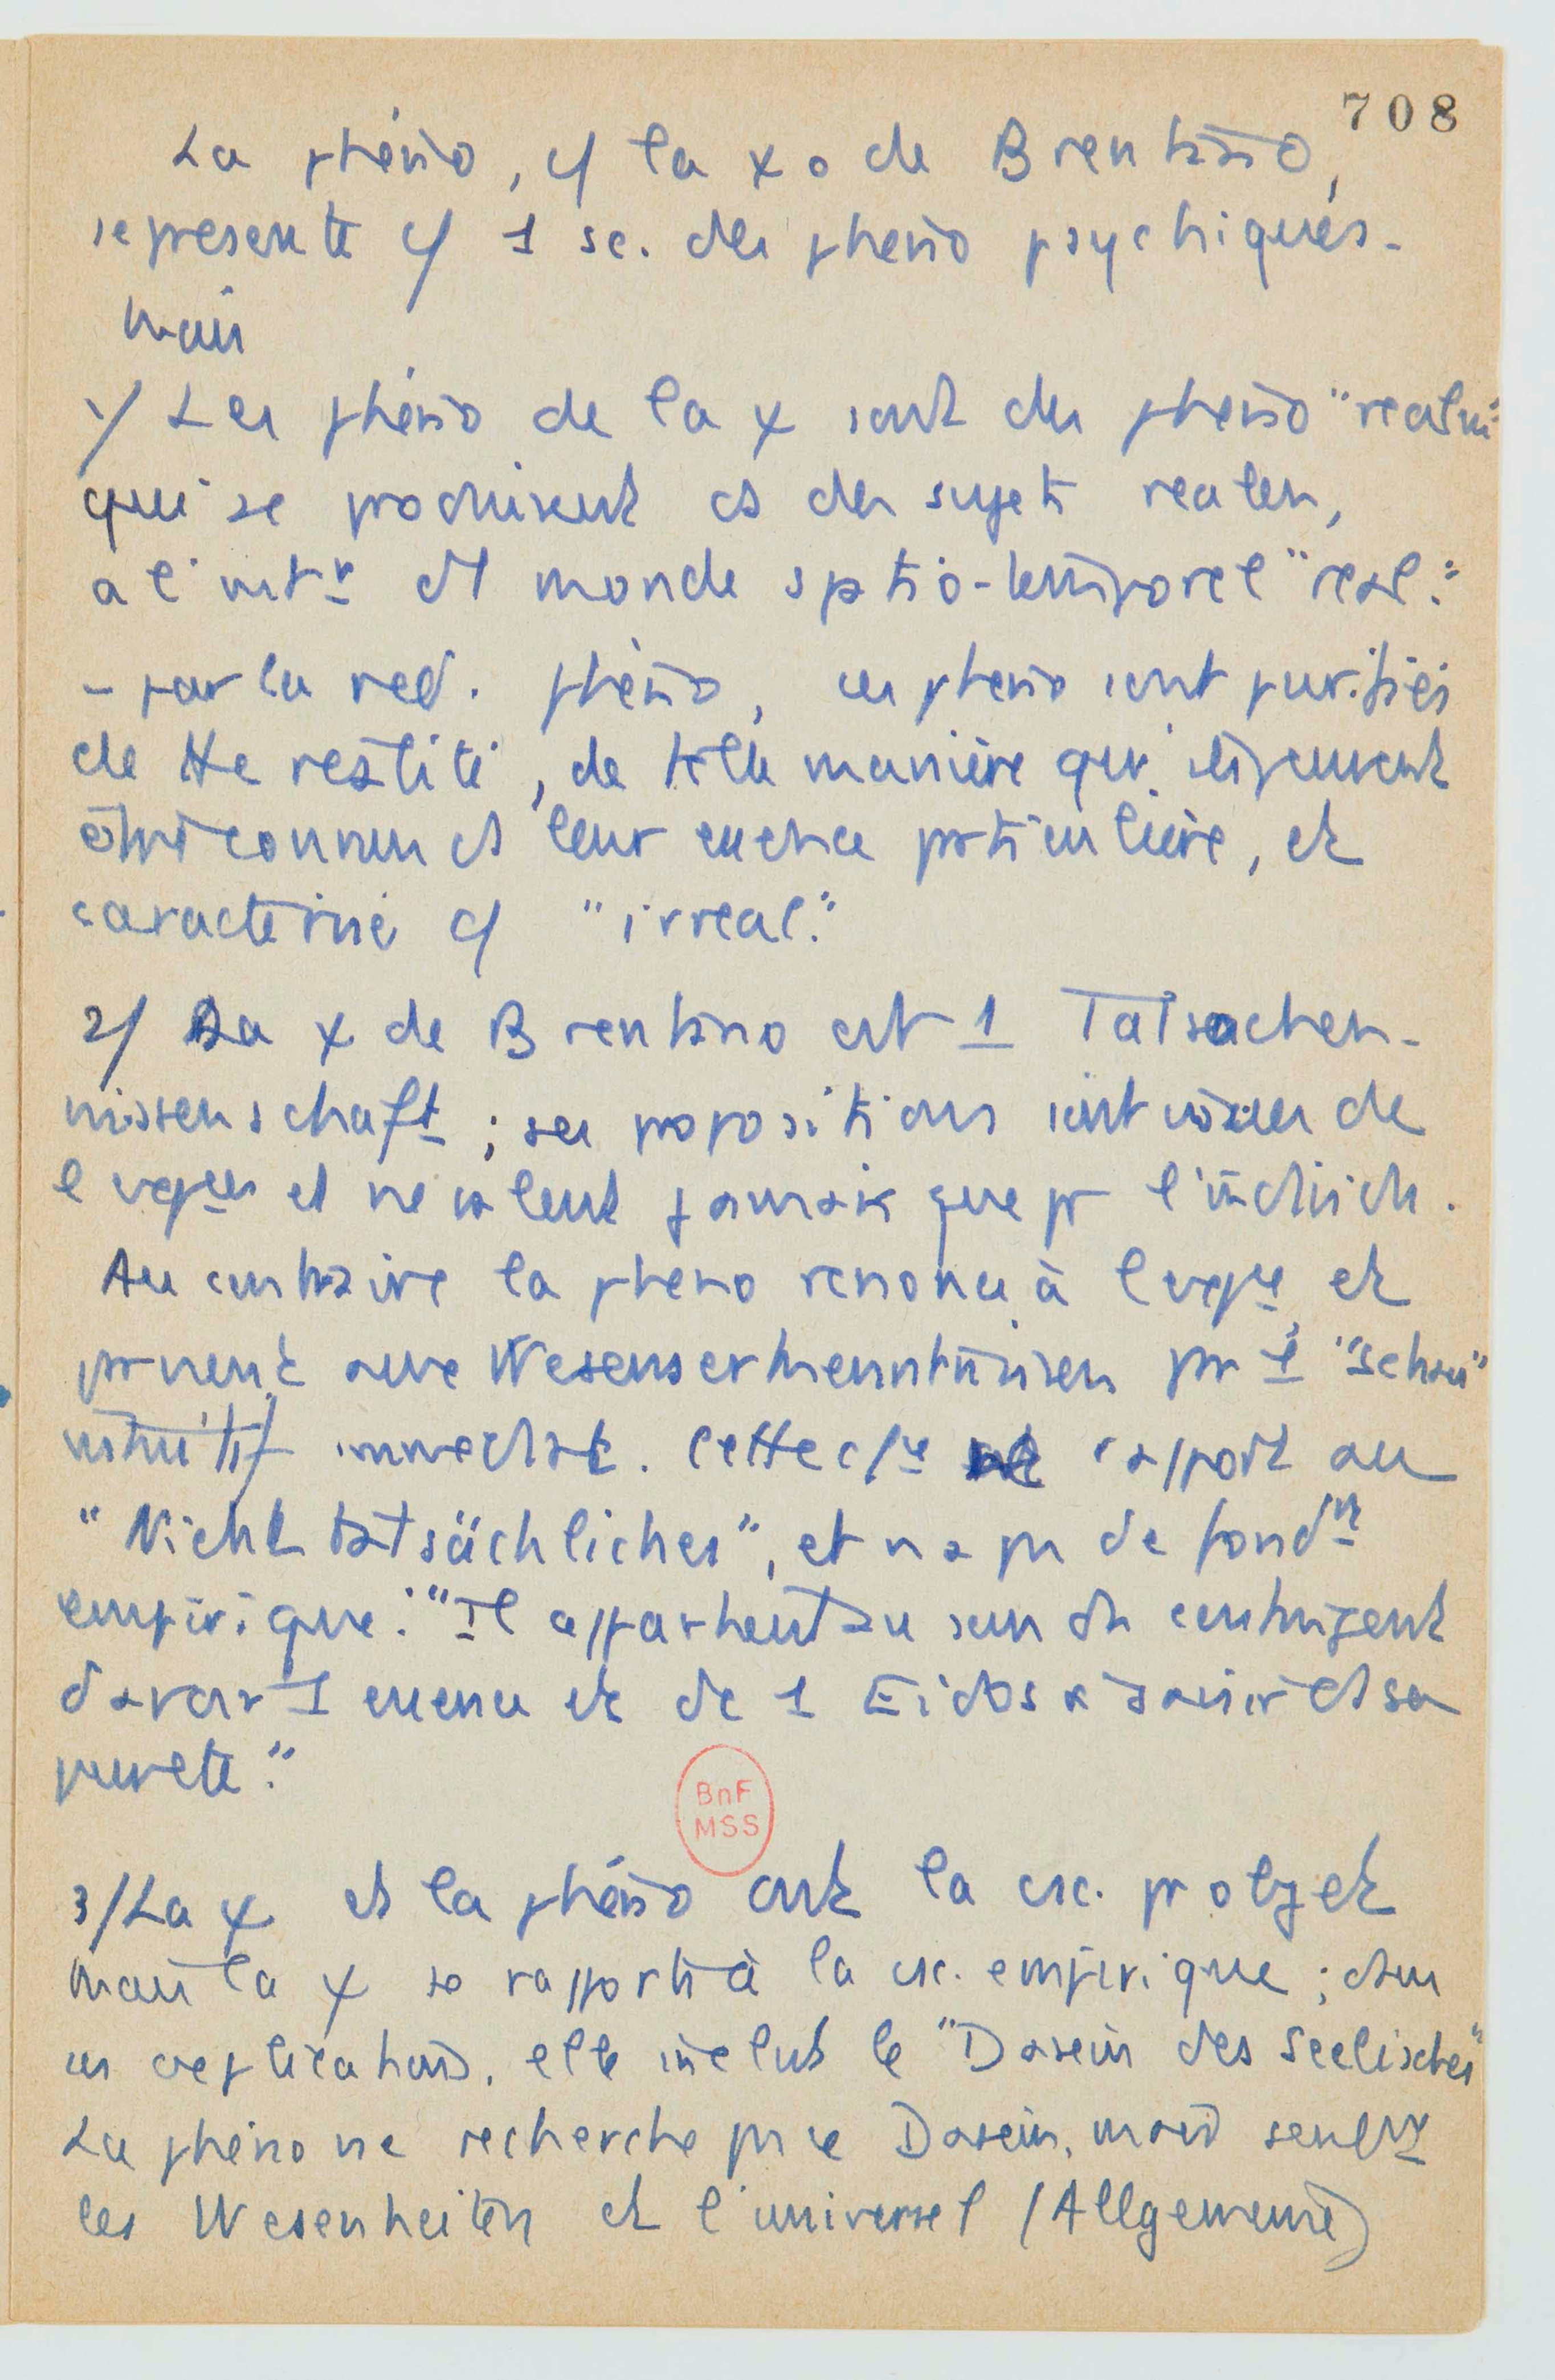 708
La phéno, c/ la ψo de Brentano,
se presente c/ 1 sc. des pheno psychiques.
Mais
1/ Les phéno de la ψ sont des pheno "realen"
qui se produisent ds des sujets realen,
a l'intr d'1 monde sptio-temporel "real".
- par la red. phéno, ces pheno sont purifiés
de tte réalité, de telle manière qu'ils peuvent
être connus ds leur essence particulière, et
caractérisé c/ "irreal".
2/ La ψ de Brentano est 1 Tatsachen-
wissenschaft ; ses propositions sont issues de
l'expce et ne valent jamais que pr l'individu.
Au contraire la pheno renonce à l'expce, et
parvient aux Wesenserkenntnissen par 1 "schau"
intuitif immediat. Cette csce rapport au
"Nichttatsächliches", et n'a pas de fondmt
empirique. "Il appartient au sens du contingent
d'avoir 1 essence et de 1 Eidos à saisir ds sa
pureté."
BnF
MSS
3/ La ψ et la phéno ont la csc. pr objet
Mais la ψ se rapporte à la csc. empirique ; dans
ces explications, elle inclut le "Dasein des Seelisches"
La phéno ne recherche pas ce Dasein, mais seulmt
les Wesenheiten et l'universel (Allgemeine)